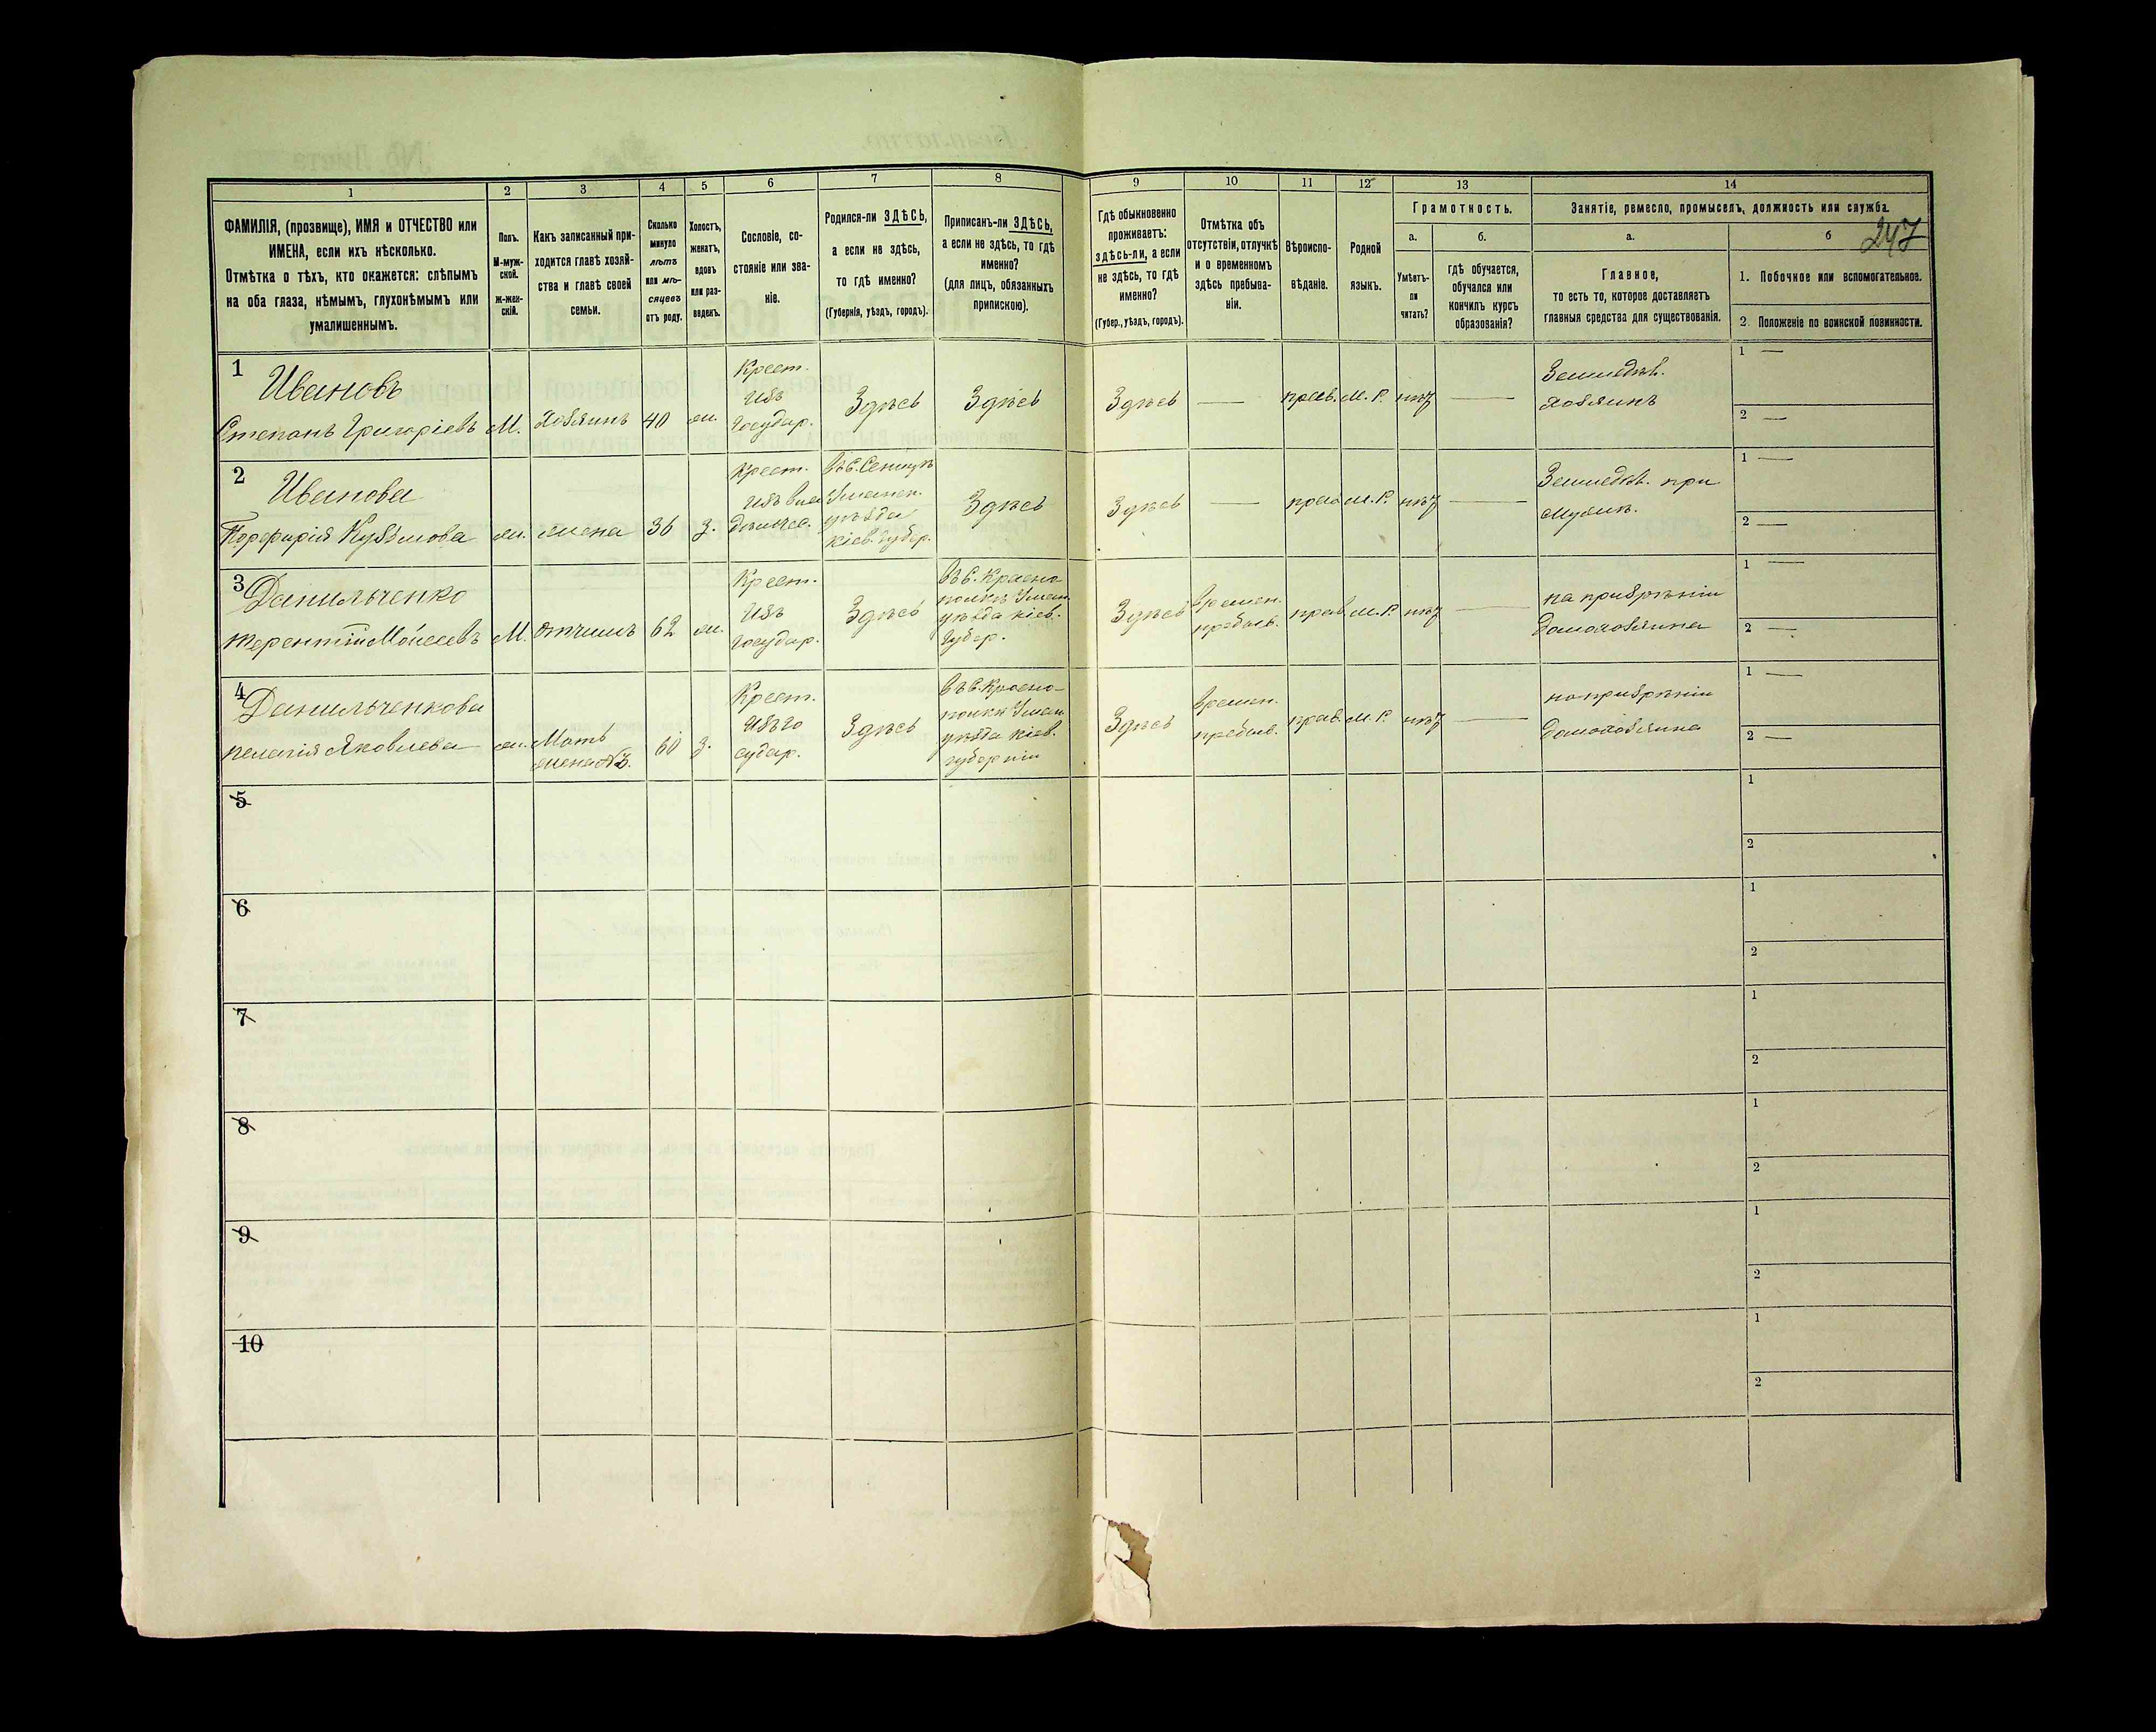 1 2 3 4 5 6 7 8 9 10 11 12 13 14
247
ФАМИЛІЯ, (прозвище), ИМЯ и ОТЧЕСТВО или
ИМЕНА, если ихъ нѣсколько.
Отмѣтка о тѣхъ, кто окажется: слѣпымъ
на оба глаза, нѣмымъ, глухонѣмымъ или
умалишеннымъ.
Полъ.
М-муж-
ской.
ж-жен-
скій.
Какъ записанный при-
ходится главѣ хозяй-
ства и главѣ своей
семьи.
Сколько
минуло
лѣтъ
или мѣ-
сяцевъ
отъ роду.
Холостъ,
женатъ,
вдовъ
или раз-
веденъ.
Сословіе, со-
стояніе или зва-
ніе.
Родился-ли ЗДѢСЬ,
а если не здѣсь,
то гдѣ именно?
(Губернія, уѣздъ, городъ).
Приписанъ-ли ЗДѢСЬ,
а если не здѣсь, то гдѣ
именно?
(для лицъ, обязанныхъ
припискою).
Гдѣ обыкновенно
проживаетъ:
здѣсь-ли, а если
не здѣсь, то гдѣ
именно?
(Губер., уѣздъ, городъ).
Отмѣтка объ
отсутствіи, отлучкѣ
и о временномъ
здѣсь пребыва-
ніи.
Вѣроиспо-
вѣданіе.
Родной
языкъ.
Грамотность.
а.
Умѣетъ-
ли
читать?
б.
гдѣ обучается,
обучался или
кончилъ курсъ
образованія?
Занятіе, ремесло, промыселъ, должность или служба.
а.
Главное,
то есть то, которое доставляетъ
главныя средства для существованія.
б
1. Побочное или вспомогательное.
2. Положеніе по воинской повинности.
1
Ивановъ
Степанъ Григоріевъ
М.
Хозяинъ
40
ж.
Крест.
изъ
государ.
Здѣсь
Здѣсь
Здѣсь
—
прав.
М. Р.
нѣтъ
—
Земледѣл.
хозяинъ
1 —
2 —
2
Иванова
Порфирія Кузьмова
ж.
жена
36
з.
Крест.
изъ вла
дѣльчес.
Уманск.
уѣзда
кіев. губер.
Здѣсь
Здѣсь
—
прав
М. Р.
нѣтъ
—
Земледѣл. при
мужѣ.
1 —
2 —
3
Данильченко
Терентій Моисеевъ
М.
отчимъ
62
ж.
Крест.
изъ
государ.
Здѣсь
Въ с. Красно
полкѣ Уман.
уѣзда кіев.
губер.
Здѣсь
времен.
пребыв.
прав.
М. Р.
нѣтъ
—
на призрѣніи
домохозяина
1 —
2 —
4
Данильченкова
Пелагія Яковлева
ж.
Мать
жена №3.
60
з.
Крест.
изъ го
судар.
Здѣсь
Въ с. Красно-
полкѣ Уман.
уѣзда кіев.
губерніи
Здѣсь
времен.
пребыв.
прав.
М. Р.
нѣтъ
—
на призрѣніи
домохозяина
1 —
2 —
5
1
2
6
1
2
7
1
2
8
1
2
9
1
2
10
1
2